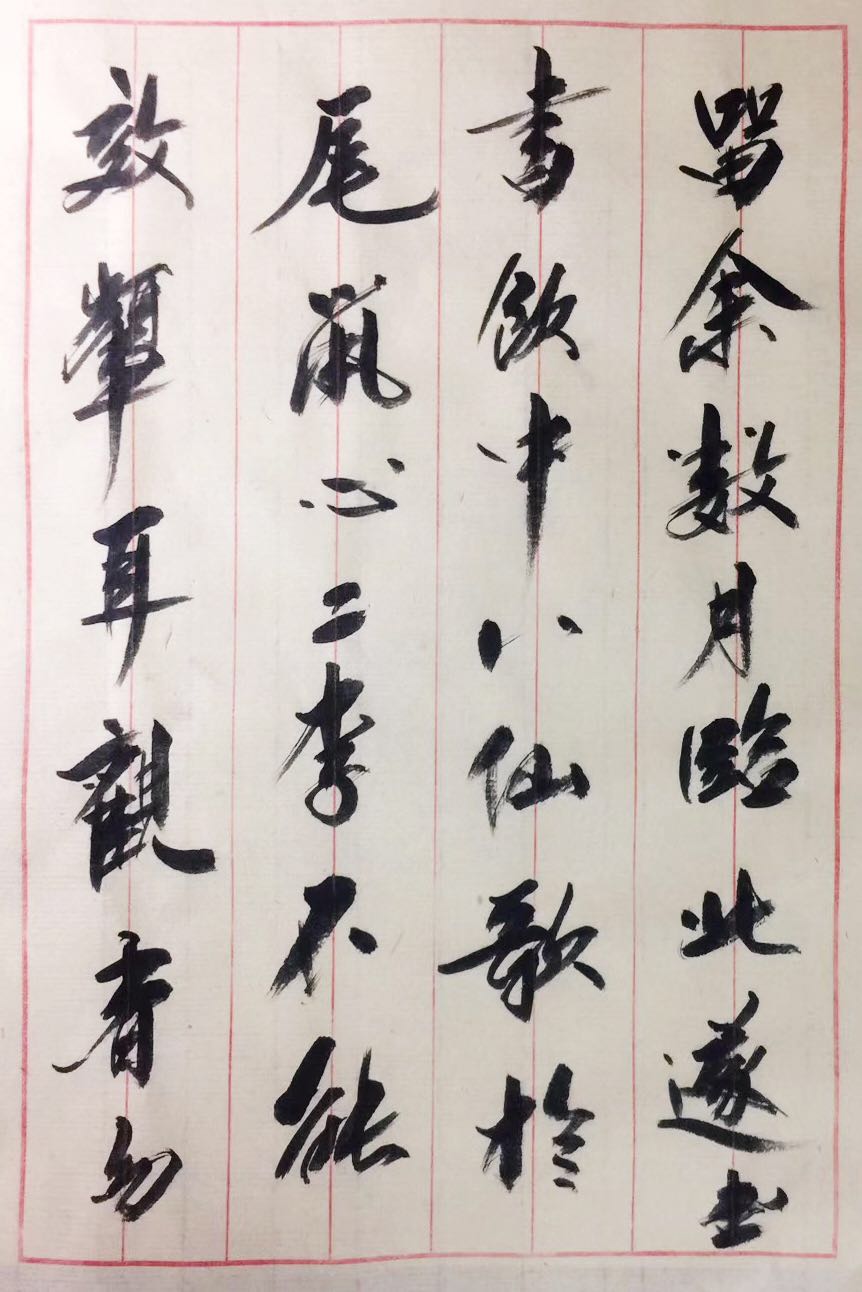 留余數月臨此遂書
書飲中八仙歌於
尾心二李不能
效顰耳觀者勿